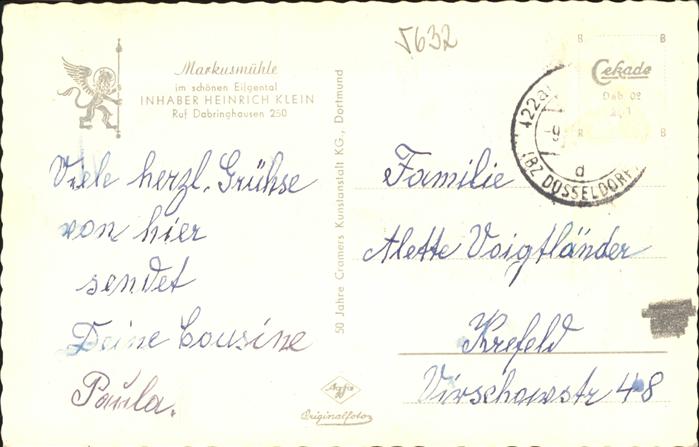 5632
Markusmühle
im schönen Eifgental
INHABER HEINRICH KLEIN
Ruf Dabringhausen 250
Viele herzl. Grühse
von hier
sendet
Deine Cousine
Paula.
50 Jahre Cramers Kunstanstalt KG., Dortmund
Agfa
Originalfoto
B B
Cekade
Dab. 02
R R
(22a)
(BZ DÜSSELDORF)
d
Familie
Alette Voigtländer
Krefeld
Virschowstr 48